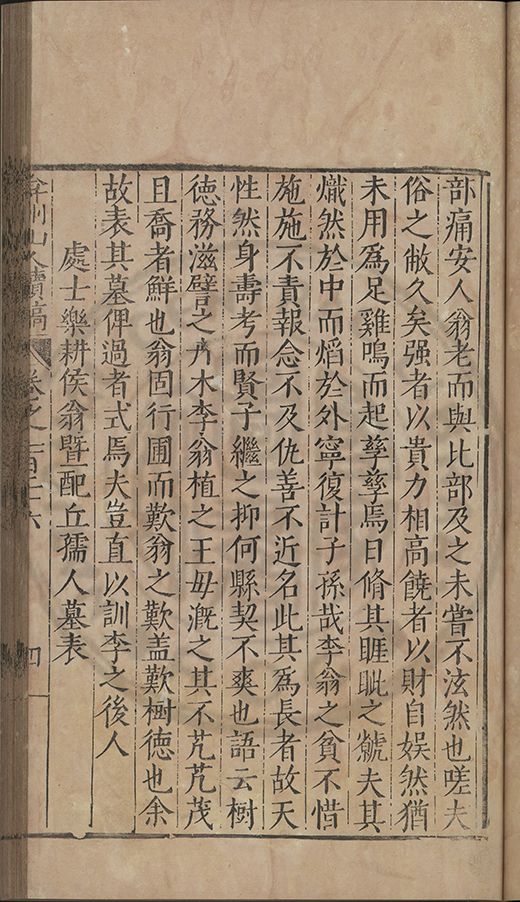 部痛安人翁老而與比部及之未嘗不泫然也嗟夫
俗之敝久矣强者以貴力相高饒者以財自娯然猶
未用爲足雞鳴而起孳孳焉日脩其睚眦之虩夫其
熾然於中而熖於外寧復計子孫哉李翁之貧不惜
施施不責報念不及仇善不近名此其爲長者故天
性然身壽考而賢子繼之抑何縣契不爽也語云樹
徳務滋譬之卉木李翁植之王毋漑之其不芃芃茂
且喬者鮮也翁固行圃而歎翁之歎盖歎樹徳也余
故表其墓俾過者式焉夫豈直以訓李之後人
處士樂耕侯翁暨配丘孺人墓表
弇州山人續稿 卷之一百二十六 四